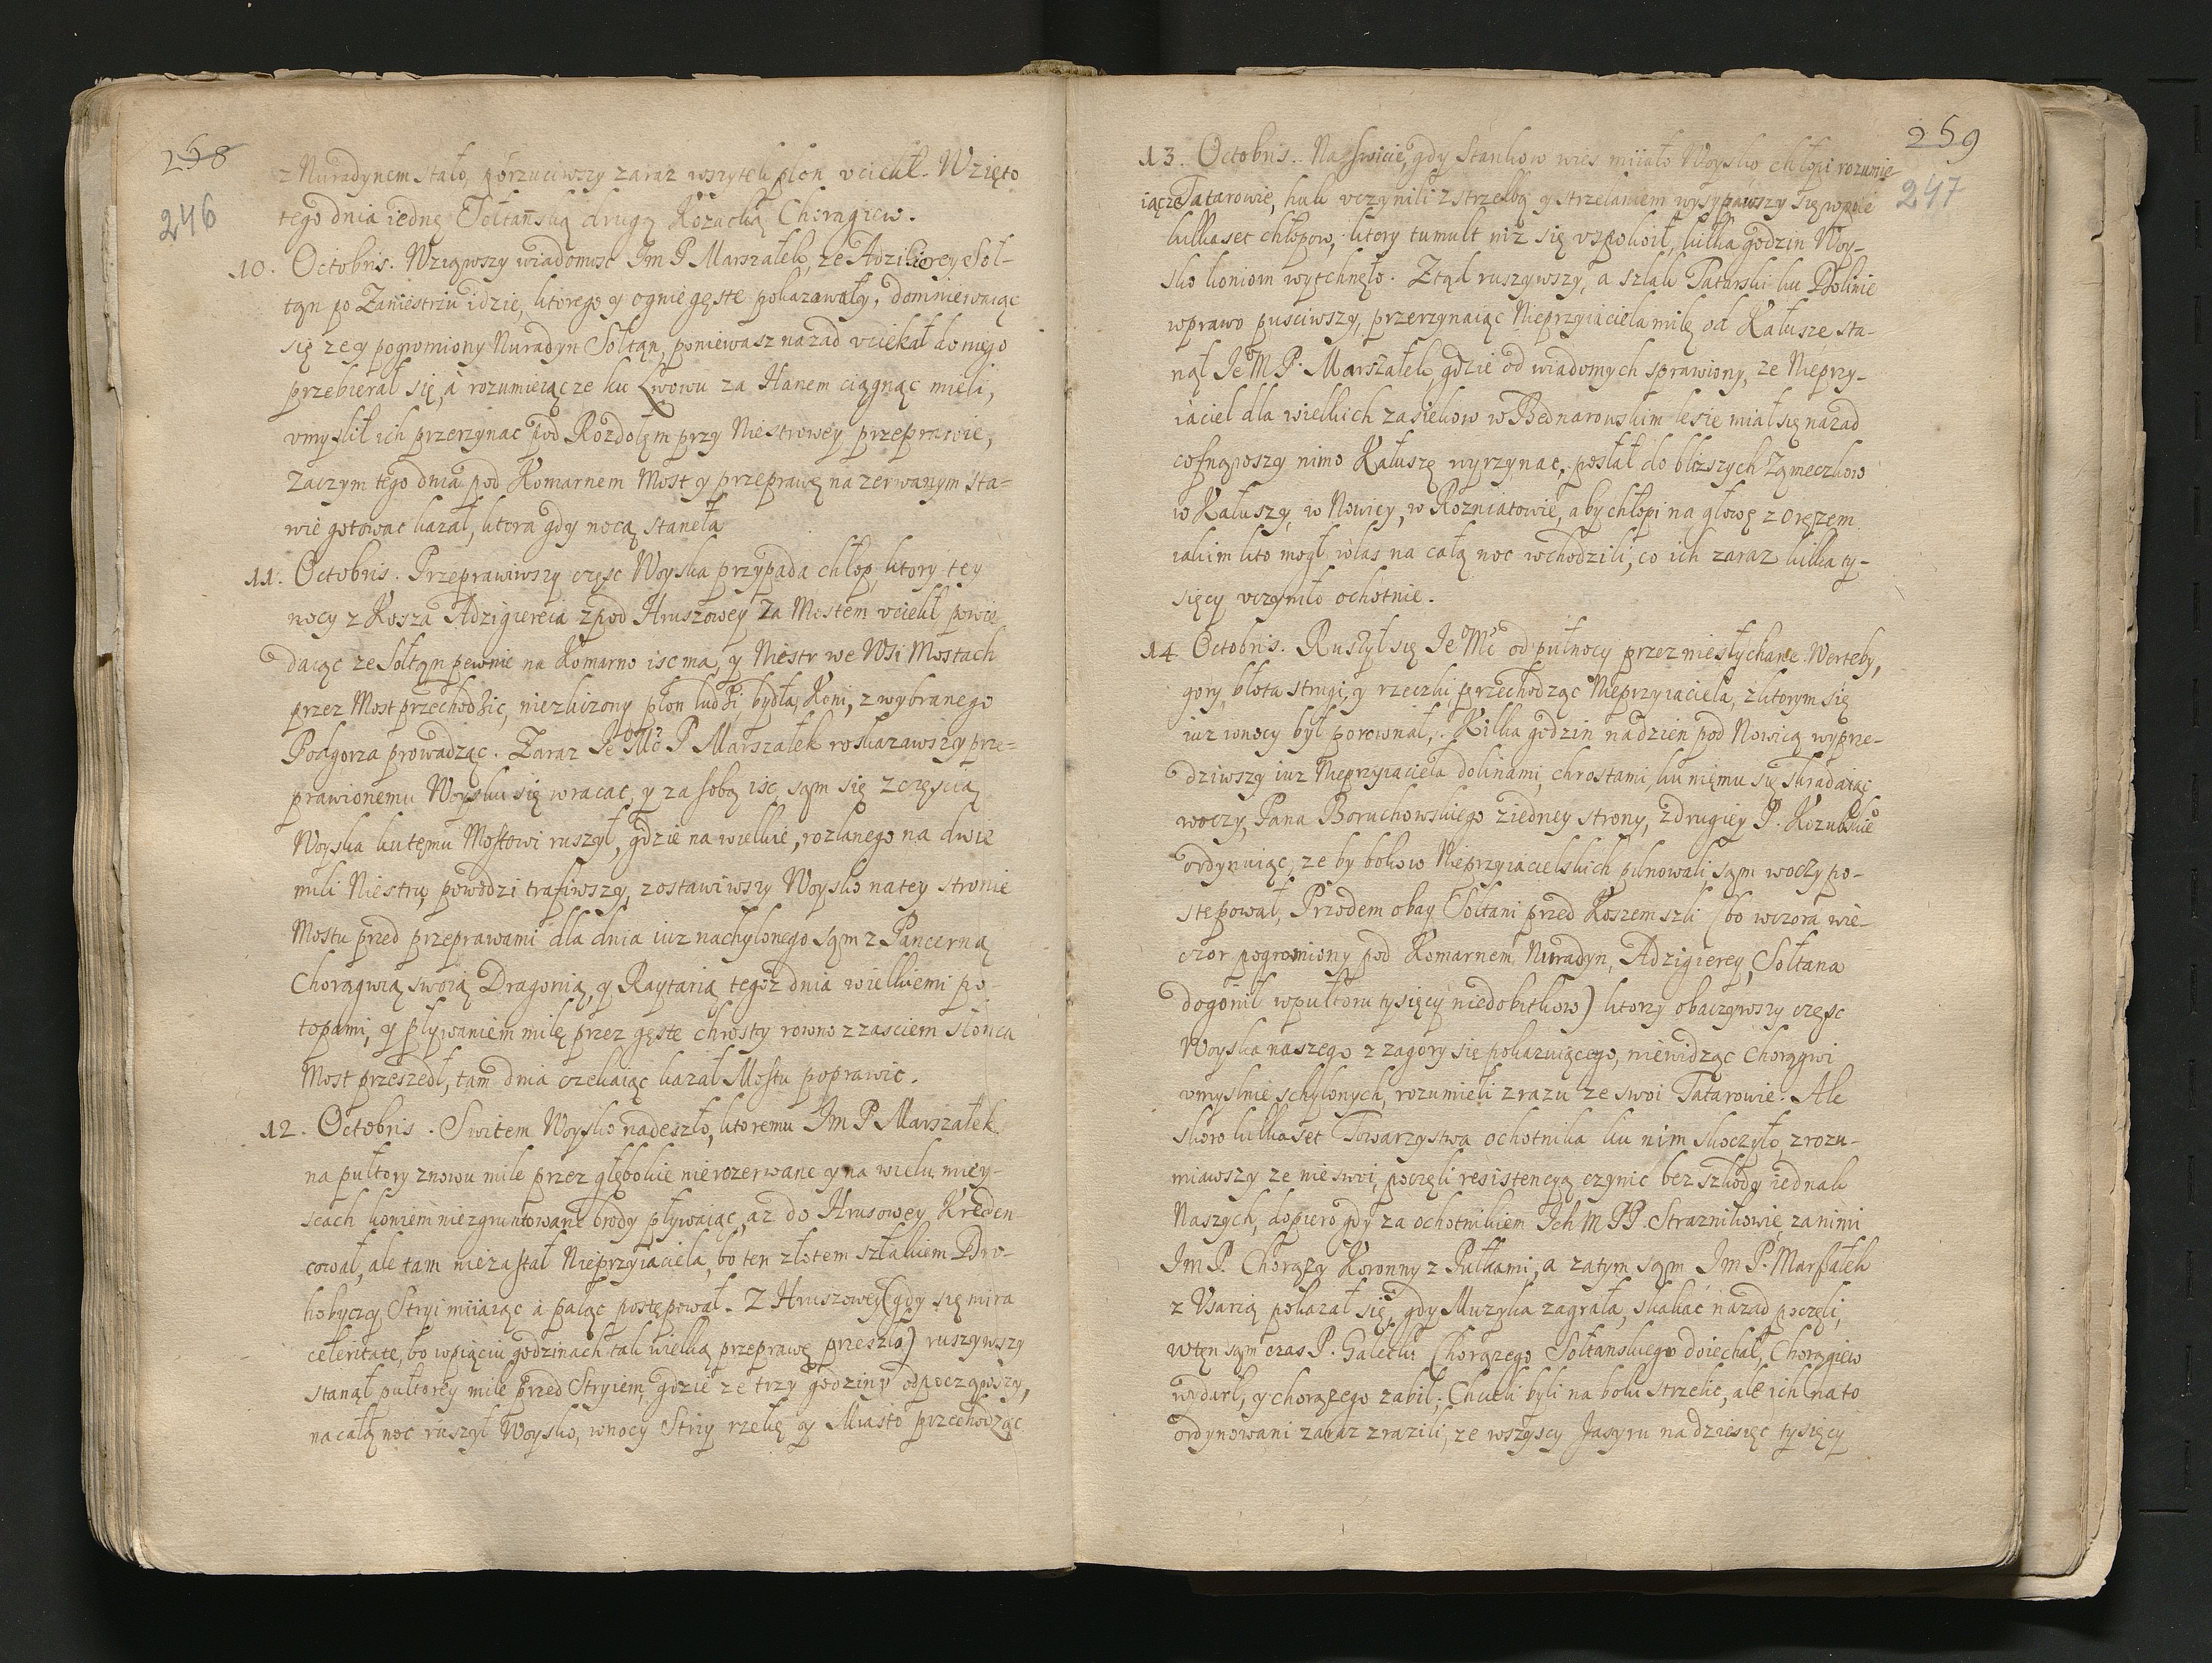 258
246
z Nuradynem stało, porzuciwszy zaraz wszytek plon vciekł. Wzięto
tego dnia iednę Sołtanską drugą Kozacką Chorągiew.
10. Octobris. Wziąwszy wiadomosc Im P Marszałek, ze Adzikierey Soł-
tąn po Zaniestrzu idzie, ktorego y ognie gęste pokazowały, domniewaiąc
się ze y pogromiony Nuradyn Sołtąn, poniewasz nazad vciekał do niego
przebierał się, a rozumieiąc ze ku Lwowu za Hanem ciągnąc mieli,
vmyslił ich przerzynac pod Rozdołęm przy Niestrowey przeprawie,
zaczym tego dnia pod Komarnem Most y przeprawę na zerwanym sta-
wie gotowac kazał, ktora gdy nocą stanęła
11. Octobris. Przeprawiwszy częsc Woyska przypada chłop, ktory tey
nocy z Kosza Adzigiereia z pod Hruszowey za Mostem vciekł powie
daiąc ze Sołtąn pewnie na Komarno isc ma, y Niestr we Wsi Mostach
przez Most przechodzic, niezliczony plon ludzi, bydła, Koni, z wybranego
Podgorza prowadząc. Zaraz Ie Mc P Marszałek roskazawszy prze-
prawionemu Woysku się wracac, y za sobą isc, sąm się z częscią
Woyska ku tęmu Mostowi ruszył, gdzie na wielkie, rozlanego na dwie
mili Niestru, powodzi trafiwszy, zostawiwszy Woysko na tey stronie
Mostu przed przeprawami dla dnia iuz nachylonego sąm z Pancerną
Chorągwią swoią Dragonią, y Raytarią tegoz dnia wielkiemi po-
topami, y pływaniem milę przez gęste chrosty rowno z zasciem słonca
Most przeszedł, tam dnia czekaiąc kazał Mostu poprawic.
12. Octobris. Switem Woysko nadeszło, ktoremu Im P Marszałek
na pułtory znowu mile przez głębokie nierozerwane y na wielu miey-
scach koniem niezgruntowane brody pływaiąc, az do Hrusowey Kreden-
cował, ale tam nie zastał Nieprzyiaciela, bo ten złotem szlakiem Dro-
hobyczy Stryi miiaiąc a paląc postępował. Z Hruszowey (gdy się mira
celeritate, bo w piąciu godzinach tak wielką przeprawę przeszło) ruszywszy
stanął pułtorey mile przed Stryiem, gdzie ze trzy godziny odpocząwszy,
na całą noc ruszył Woysko, w nocy Stryy rzekę y Miasto przechodząc
259
247
13. Octobris. Na switcie, gdy Stankow wies miiało Woysko chłopi rozumie
iąc ze Tatarowie, huk vczynili z strzelbą y strzelaniem wysypawszy się w pole
kilkaset chłopow, ktory tumult niz się vspokoił, kilka godzin Woy-
sko koniom wytchnęło. Ztąd ruszywszy, a szlak Tatarski ku Dolinie
w prawo pusciwszy, przerzynaiąc Nieprzyiaciela milę od Kałusze sta-
nął Ie M P. Marszałek, gdzie od wiadomych sprawiony, ze Nieprzy-
iaciel dla wielkich zasiekow w Bednarowskim lesie miał się nazad
cofnąwszy nimo Kałuszę wyrzynac, posłał do blizszych Zameczkow
w Kałuszy, w Nowicy, w Rozniatowie, aby chłopi na głowę z oręzem
iakim kto mogł w las na całą noc wchodzili, co ich zaraz kilka ty-
sięcy vczyniło ochotnie.
14. Octobris. Ruszył się Ie Mc od pułnocy przez niesłychane Werteby,
gory, błota strugi, y rzeczki, przechodząc Nieprzyiaciela, z ktorym się
iuz w nocy był porownał, Kilka godzin na dzien pod Nowicą wyprze-
dziwszy iuz Nieprzyiaciela dolinami, chrostami, ku niemu się skradaiąc
w oczy, Pana Boruchowskiego z iedney strony, z drugiey P. Kozubskie
ordynuiąc, ze by bokow Nieprzyiacielskich pilnowali, sąm w oczy po-
stępował, Przodem obay Sołtani przed Koszem szli (bo wczora wie-
czor pogromiony pod Komarnem Nuradyn, Adzigierey Sołtana
dogonił w pułtoru tysięcy niedobitkow) ktorzy obaczywszy częsc
Woyska naszego z za gory się pokazuiącego, nie widząc Chorągwi
vmyslnie schylonych, rozumieli zrazu ze swoi Tatarowie. Ale
skoro kilkaset Towarzystwa ochotnika ku nim skoczyło, zrozu-
miawszy ze nie swoi, poczęli resistencyą czynic bez szkody iednak
Naszych, dopiero gdy za ochotnikiem Ich M PP. Straznikowie, za nimi
Im P. Chorązy Koronny z Pułkami, a zatym sąm Im P. Marszałek
z Vsarią pokazał się, gdy Muzyka zagrała, skakac nazad poczęli,
w tęn sąm czas P. Gałecki Chorązego Sołtanskiego doiechał, Chorągiew
wydarł, y chorązego zabił. Chcieli byli na boku strzelic, ale ich na to
ordynowani zaraz zrazili, ze wszyscy Jasyru na dziesięc tysięcy